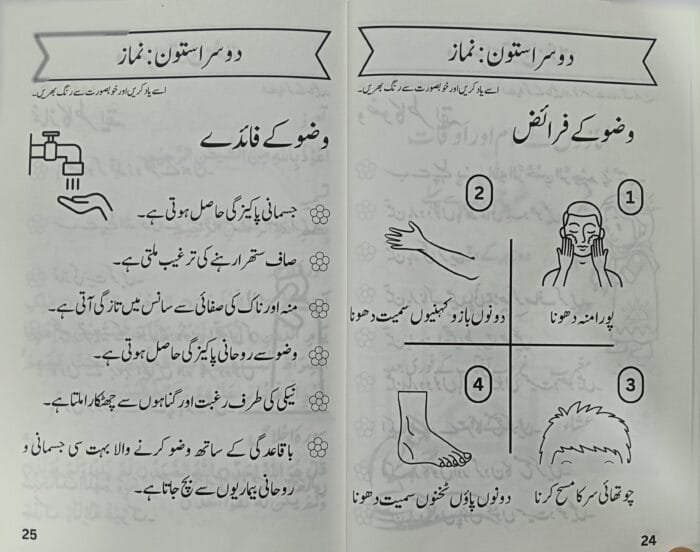 دوسرا ستون: نماز
اسے یاد کریں اور خوبصورت سے رنگ بھریں۔
وضو کے فرائض
1
پورا منہ دھونا
2
دونوں بازو کہنیوں سمیت دھونا
3
چوتھائی سر کا مسح کرنا
4
دونوں پاؤں ٹخنوں سمیت دھونا
24
دوسرا ستون: نماز
اسے یاد کریں اور خوبصورت سے رنگ بھریں۔
وضو کے فائدے
جسمانی پاکیزگی حاصل ہوتی ہے۔
صاف ستھرا رہنے کی ترغیب ملتی ہے۔
منہ اور ناک کی صفائی سے سانس میں تازگی آتی ہے۔
وضو سے روحانی پاکیزگی حاصل ہوتی ہے۔
نیکی کی طرف رغبت اور گناہوں سے چھٹکارا ملتا ہے۔
باقاعدگی کے ساتھ وضو کرنے والا بہت سی جسمانی و
روحانی بیماریوں سے بچ جاتا ہے۔
25